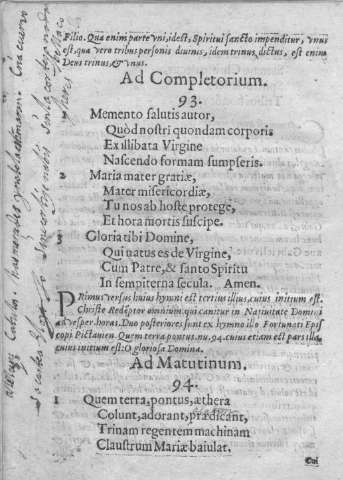 Filio. Qua enim parte vni, idest, Spiritui sancto impenditur, vnus
est, qua vero tribus personis diuinis, idem trinus dictus, est enim
Deus trinus, & vnus.
Ad Completorium.
93.
Memento salutis autor,
Quòd nostri quondam corporis
Ex illibata Virgine
Nascendo formam sumpseris.
Maria mater gratiæ,
Mater misericordiæ,
Tu nos ab hoste protege,
Et hora mortis suscipe.
Gloria tibi Domine,
Qui natus es de Virgine,
Cum Patre, & santo Spiritu
In sempiterna secula. Amen.
PRimus versus huius hymni est tertius illius, cuius initium est.
Christe Redẽptor omnium, qui canitur in Natiuitate Domini
ad vesper. horas. Duo posteriores sunt ex hymno illo Fortunati Epis
copi Pictauien. Quem terra pontus. nu. 94. cuius etiam est pars illa,
cuius initium est: O gloriosa Domina.
Ad Matutinum.
94.
Quem terra, pontus, æthera
Colunt, adorant, prædicant,
Trinam regentem machinam
Claustrum Mariæ baiulat.
Cui